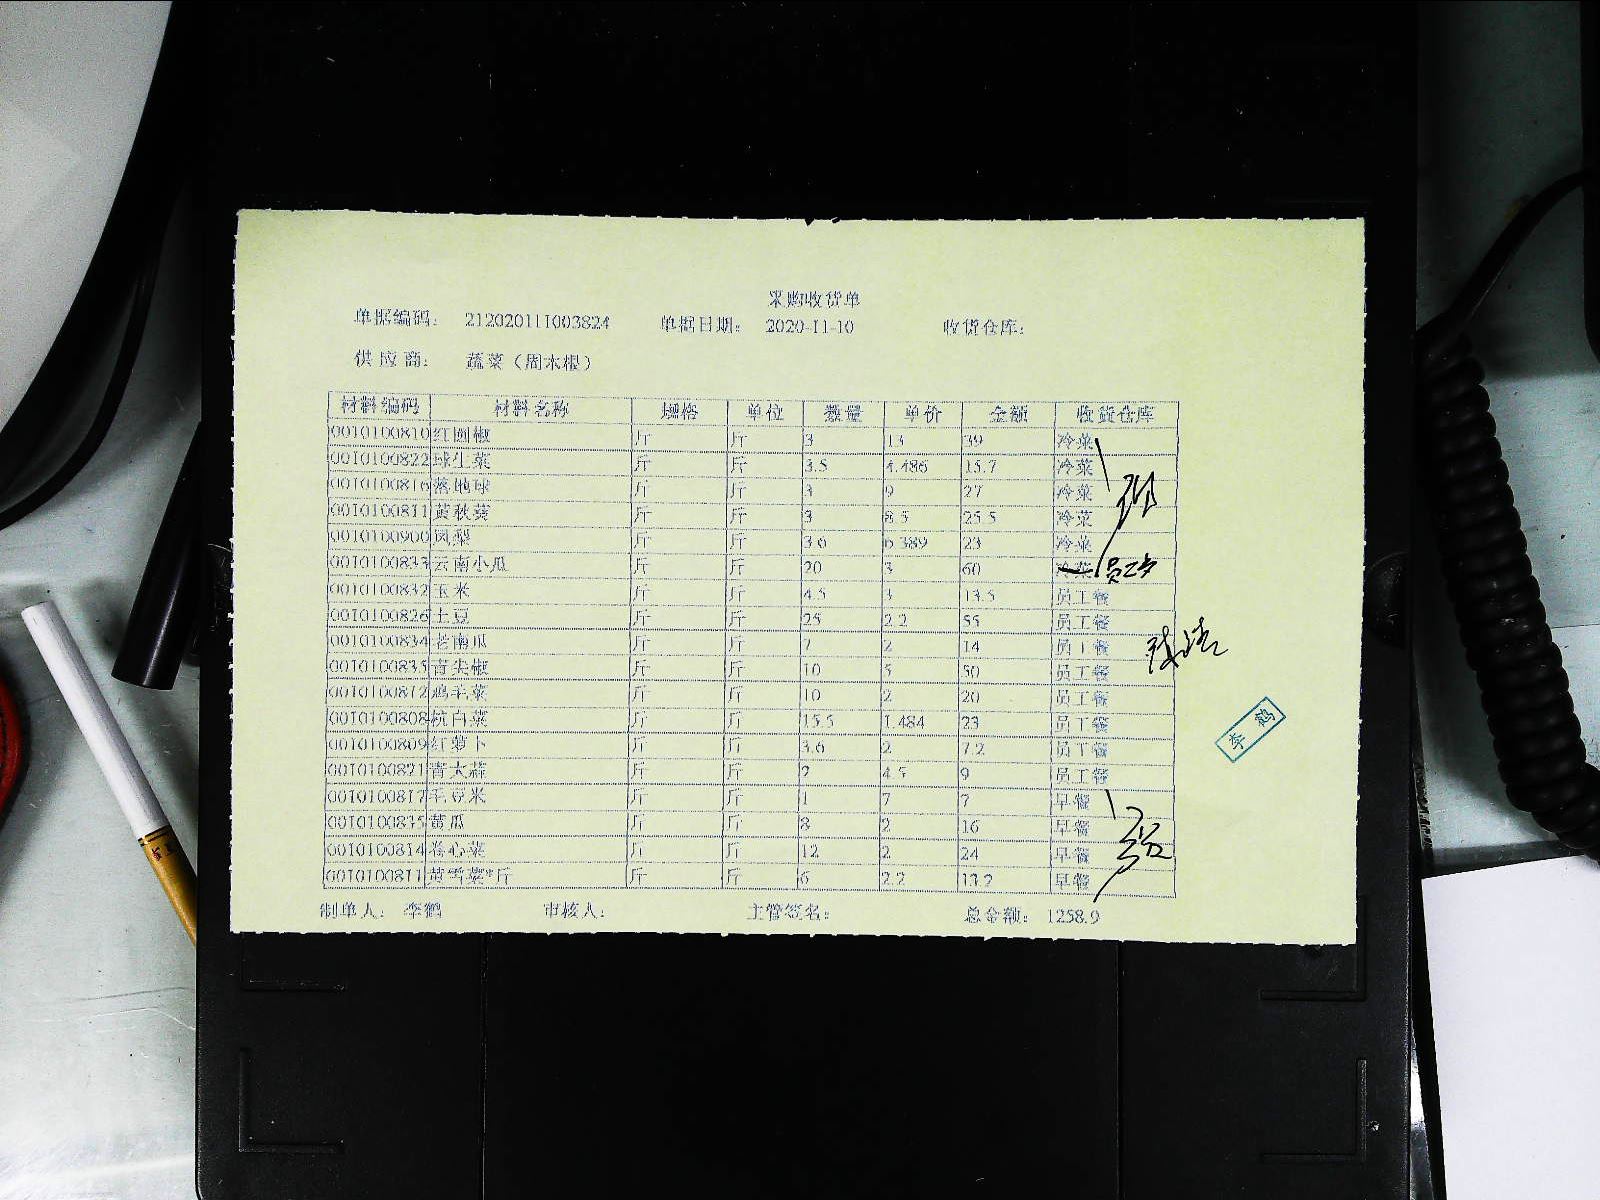 采购收货单
单据编码： 212020111003824 单据日期： 2020-11-10 收货仓库：
供应商： 蔬菜（周木根）
材料编码 材料名称 规格 单位 数量 单价 金额 收货仓库
0010100810 红圆椒 斤 斤 3 13 39 冷菜
0010100822 球生菜 斤 斤 3.5 4.486 15.7 冷菜
0010100816 落地球 斤 斤 3 9 27 冷菜
0010100811 黄秋葵 斤 斤 3 8.5 25.5 冷菜
0010100900 凤梨 斤 斤 3.6 6.389 23 冷菜
0010100833 云南小瓜 斤 斤 20 3 60 冷菜 员工
0010100832 玉米 斤 斤 4.5 3 13.5 员工餐
0010100826 土豆 斤 斤 25 2.2 55 员工餐
0010100834 老南瓜 斤 斤 7 2 14 员工餐
0010100835 青尖椒 斤 斤 10 5 50 员工餐
0010100812 鸡毛菜 斤 斤 10 2 20 员工餐
0010100808 杭白菜 斤 斤 15.5 1.484 23 员工餐
0010100809 红萝卜 斤 斤 3.6 2 7.2 员工餐
0010100821 青大蒜 斤 斤 2 4.5 9 员工餐
0010100817 毛豆米 斤 斤 1 7 7 早餐
0010100835 黄瓜 斤 斤 8 2 16 早餐
0010100814 卷心菜 斤 斤 12 2 24 早餐
0010100811 黄雪菜*斤 斤 斤 6 2.2 13.2 早餐
李鹤
制单人： 李鹤 审核人： 主管签名： 总金额： 1258.9